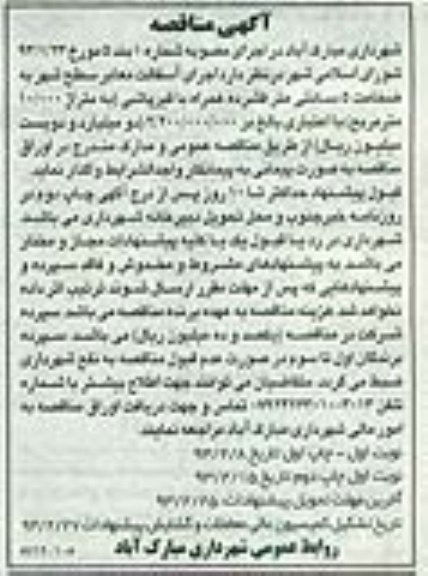 آگهی مناقصه
شهرداری مبارک آباد در اجرای مصوبه شماره ۱ بند ۵ مورخ ۹۳/۱/۲۳
شورای اسلامی شهر در نظر دارد اجرای آسفالت معابر سطح شهر به
ضخامت ۵ سانتی متر فشرده همراه با قیرپاشی (به متراژ ۱۰/۰۰۰
مترمربع) با اعتباری بالغ بر ۲/۲۰۰/۰۰۰/۰۰۰ (دو میلیارد و دویست
میلیون ریال) از طریق مناقصه عمومی و مدارک مندرج در اوراق
مناقصه به صورت پیمانی به پیمانکار واجدالشرایط واگذار نماید.
قبول پیشنهاد حداکثر تا ۱۰ روز پس از درج آگهی چاپ دوم در
روزنامه خبرجنوب و محل تحویل دبیرخانه شهرداری می باشد
شهرداری در رد یا قبول یک یا کلیه پیشنهادات مجاز و مختار
می باشد به پیشنهادهای مشروط و مخدوش و فاقد سپرده و
پیشنهادهایی که پس از مهلت مقرر ارسال شوند ترتیب اثر داده
نخواهد شد هزینه مناقصه به عهده برنده مناقصه می باشد سپرده
شرکت در مناقصه (یکصد و ده میلیون ریال) می باشد سپرده
برندگان اول تا سوم در صورت عدم قبول مناقصه به نفع شهرداری
ضبط می گردد. متقاضیان می توانند جهت اطلاع بیشتر با شماره
تلفن تماس و جهت دریافت اوراق مناقصه به
امور مالی شهرداری مبارک آباد مراجعه نمایند.
نوبت اول - چاپ اول تاریخ ۹۳/۲/۸
نوبت اول چاپ دوم تاریخ ۹۳/۲/۱۵
آخرین مهلت تحویل پیشنهادات ۹۳/۲/۲۵
تاریخ تشکیل کمیسیون عالی معاملات و گشایش پیشنهادات ۹۳/۲/۲۷
روابط عمومی شهرداری مبارک آباد